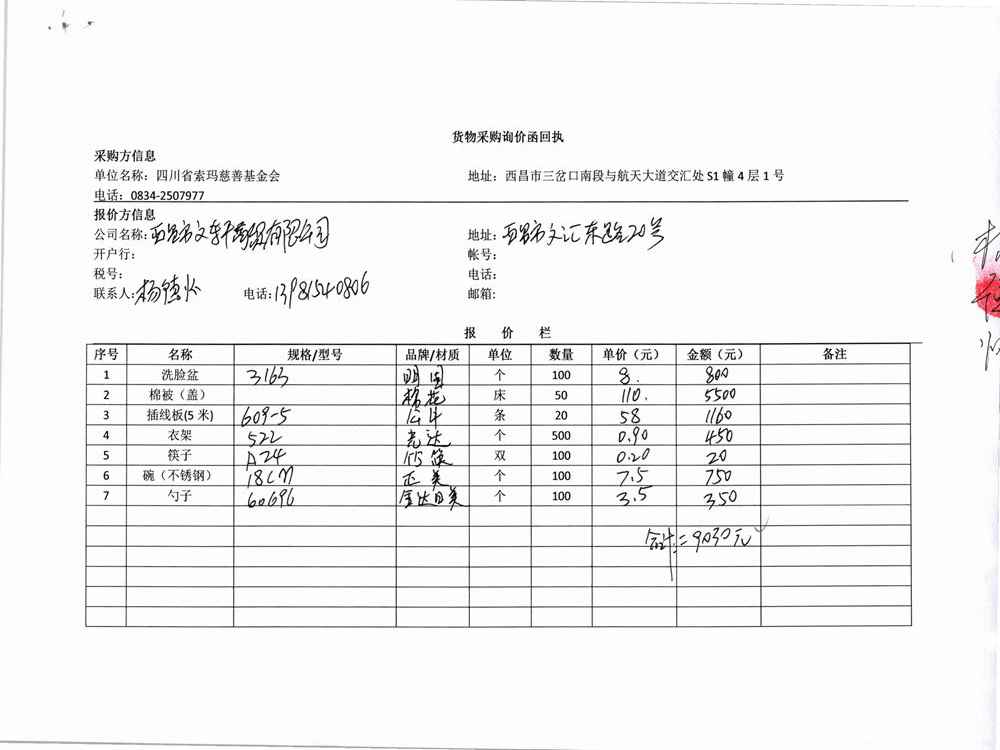 货物采购询价函回执
采购方信息
单位名称：四川省索玛慈善基金会 地址：西昌市三岔口南段与航天大道交汇处 S1 幢 4 层 1 号
电话：0834-2507977
报价方信息
公司名称：西昌市文轩商贸有限公司 地址：西昌市文汇东路20号
开户行： 帐号：
税号： 电话：
联系人：杨德 电话：13981540806 邮箱：
报 价 栏
序号 名称 规格/型号 品牌/材质 单位 数量 单价（元） 金额（元） 备注
1 洗脸盆 3163 个 100 8. 800
2 棉被（盖） 棉花 床 50 110. 5500
3 插线板(5 米) 609-5 公牛 条 20 58 1160
4 衣架 522 光达 个 500 0.90 450
5 筷子 A24 竹筷 双 100 0.20 20
6 碗（不锈钢） 18CM 正美 个 100 7.5 750
7 勺子 60696 金达日美 个 100 3.5 350
合计:=9030元